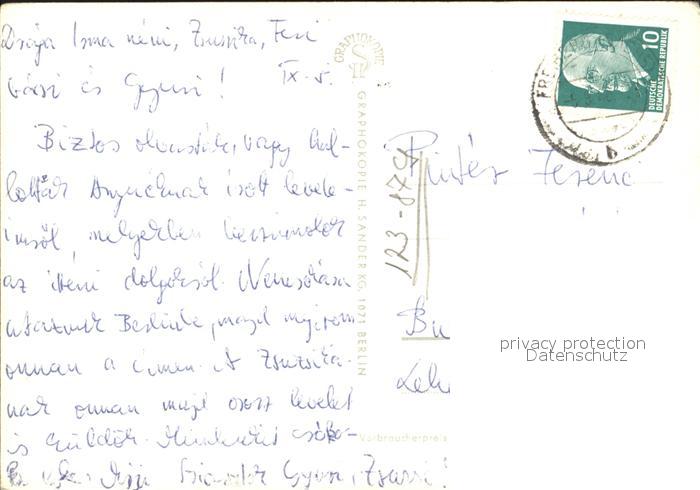 Drága Irma néni, Zsuzsika, Feri
bácsi és Gyuri! IX. 5.
Biztos olvasták, vagy hal-
lották Anyuéknak írott levele-
imből, melyekben beszámolok
az itteni dolgokról.
utazunk Berlinbe, majd megírom
onnan a címem. A Zsuzsiká-
nak onnan majd orosz levelet
is küldök. Mindenkit csóko-
Gyuri, Zsuzsi!
GRAPHOKOPIE
GRAPHOKOPIE H. SANDER KG, 1071 BERLIN
Verbraucherpreis
10
DEUTSCHE
DEMOKRATISCHE REPUBLIK
123-874
Pintér Ferenc
Bu
privacy protection
Datenschutz